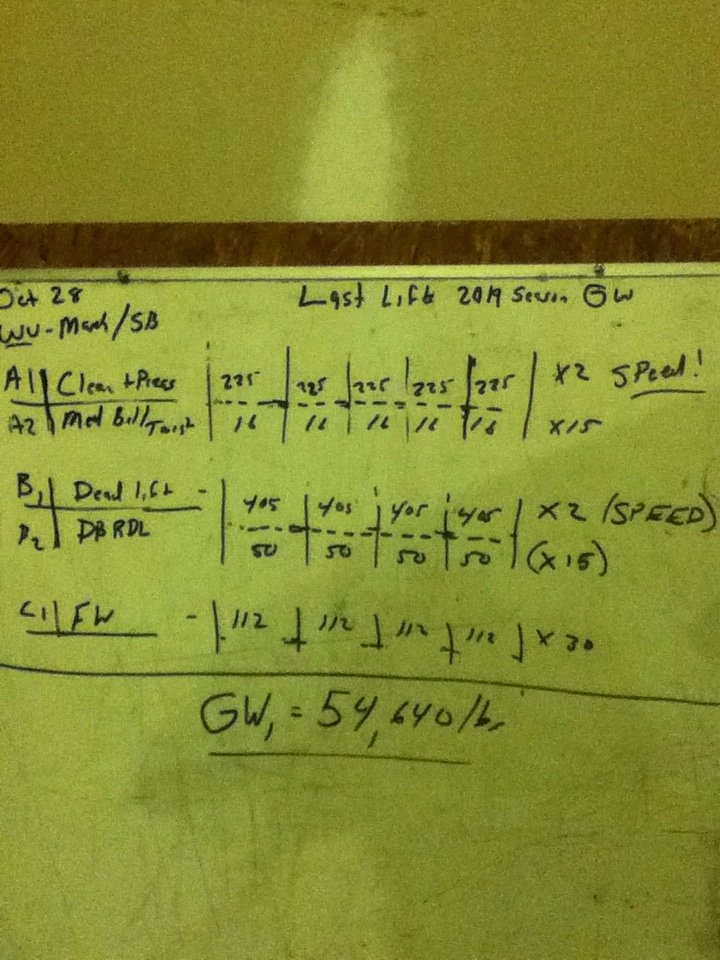 Oct 28 Last Lift 2019 GW
WU - Mach/SB
A1 Clean + Press 225 225 225 225 225 x2 SPeed!
A2 Med Ball Twist 16 16 16 16 16 x15
B1 Dead lift - 405 405 405 405 x2 (SPEED)
B2 DB RDL 50 50 50 50 (x15)
C1 FW - 112 112 112 112 x30
GW, = 54,640 lbs